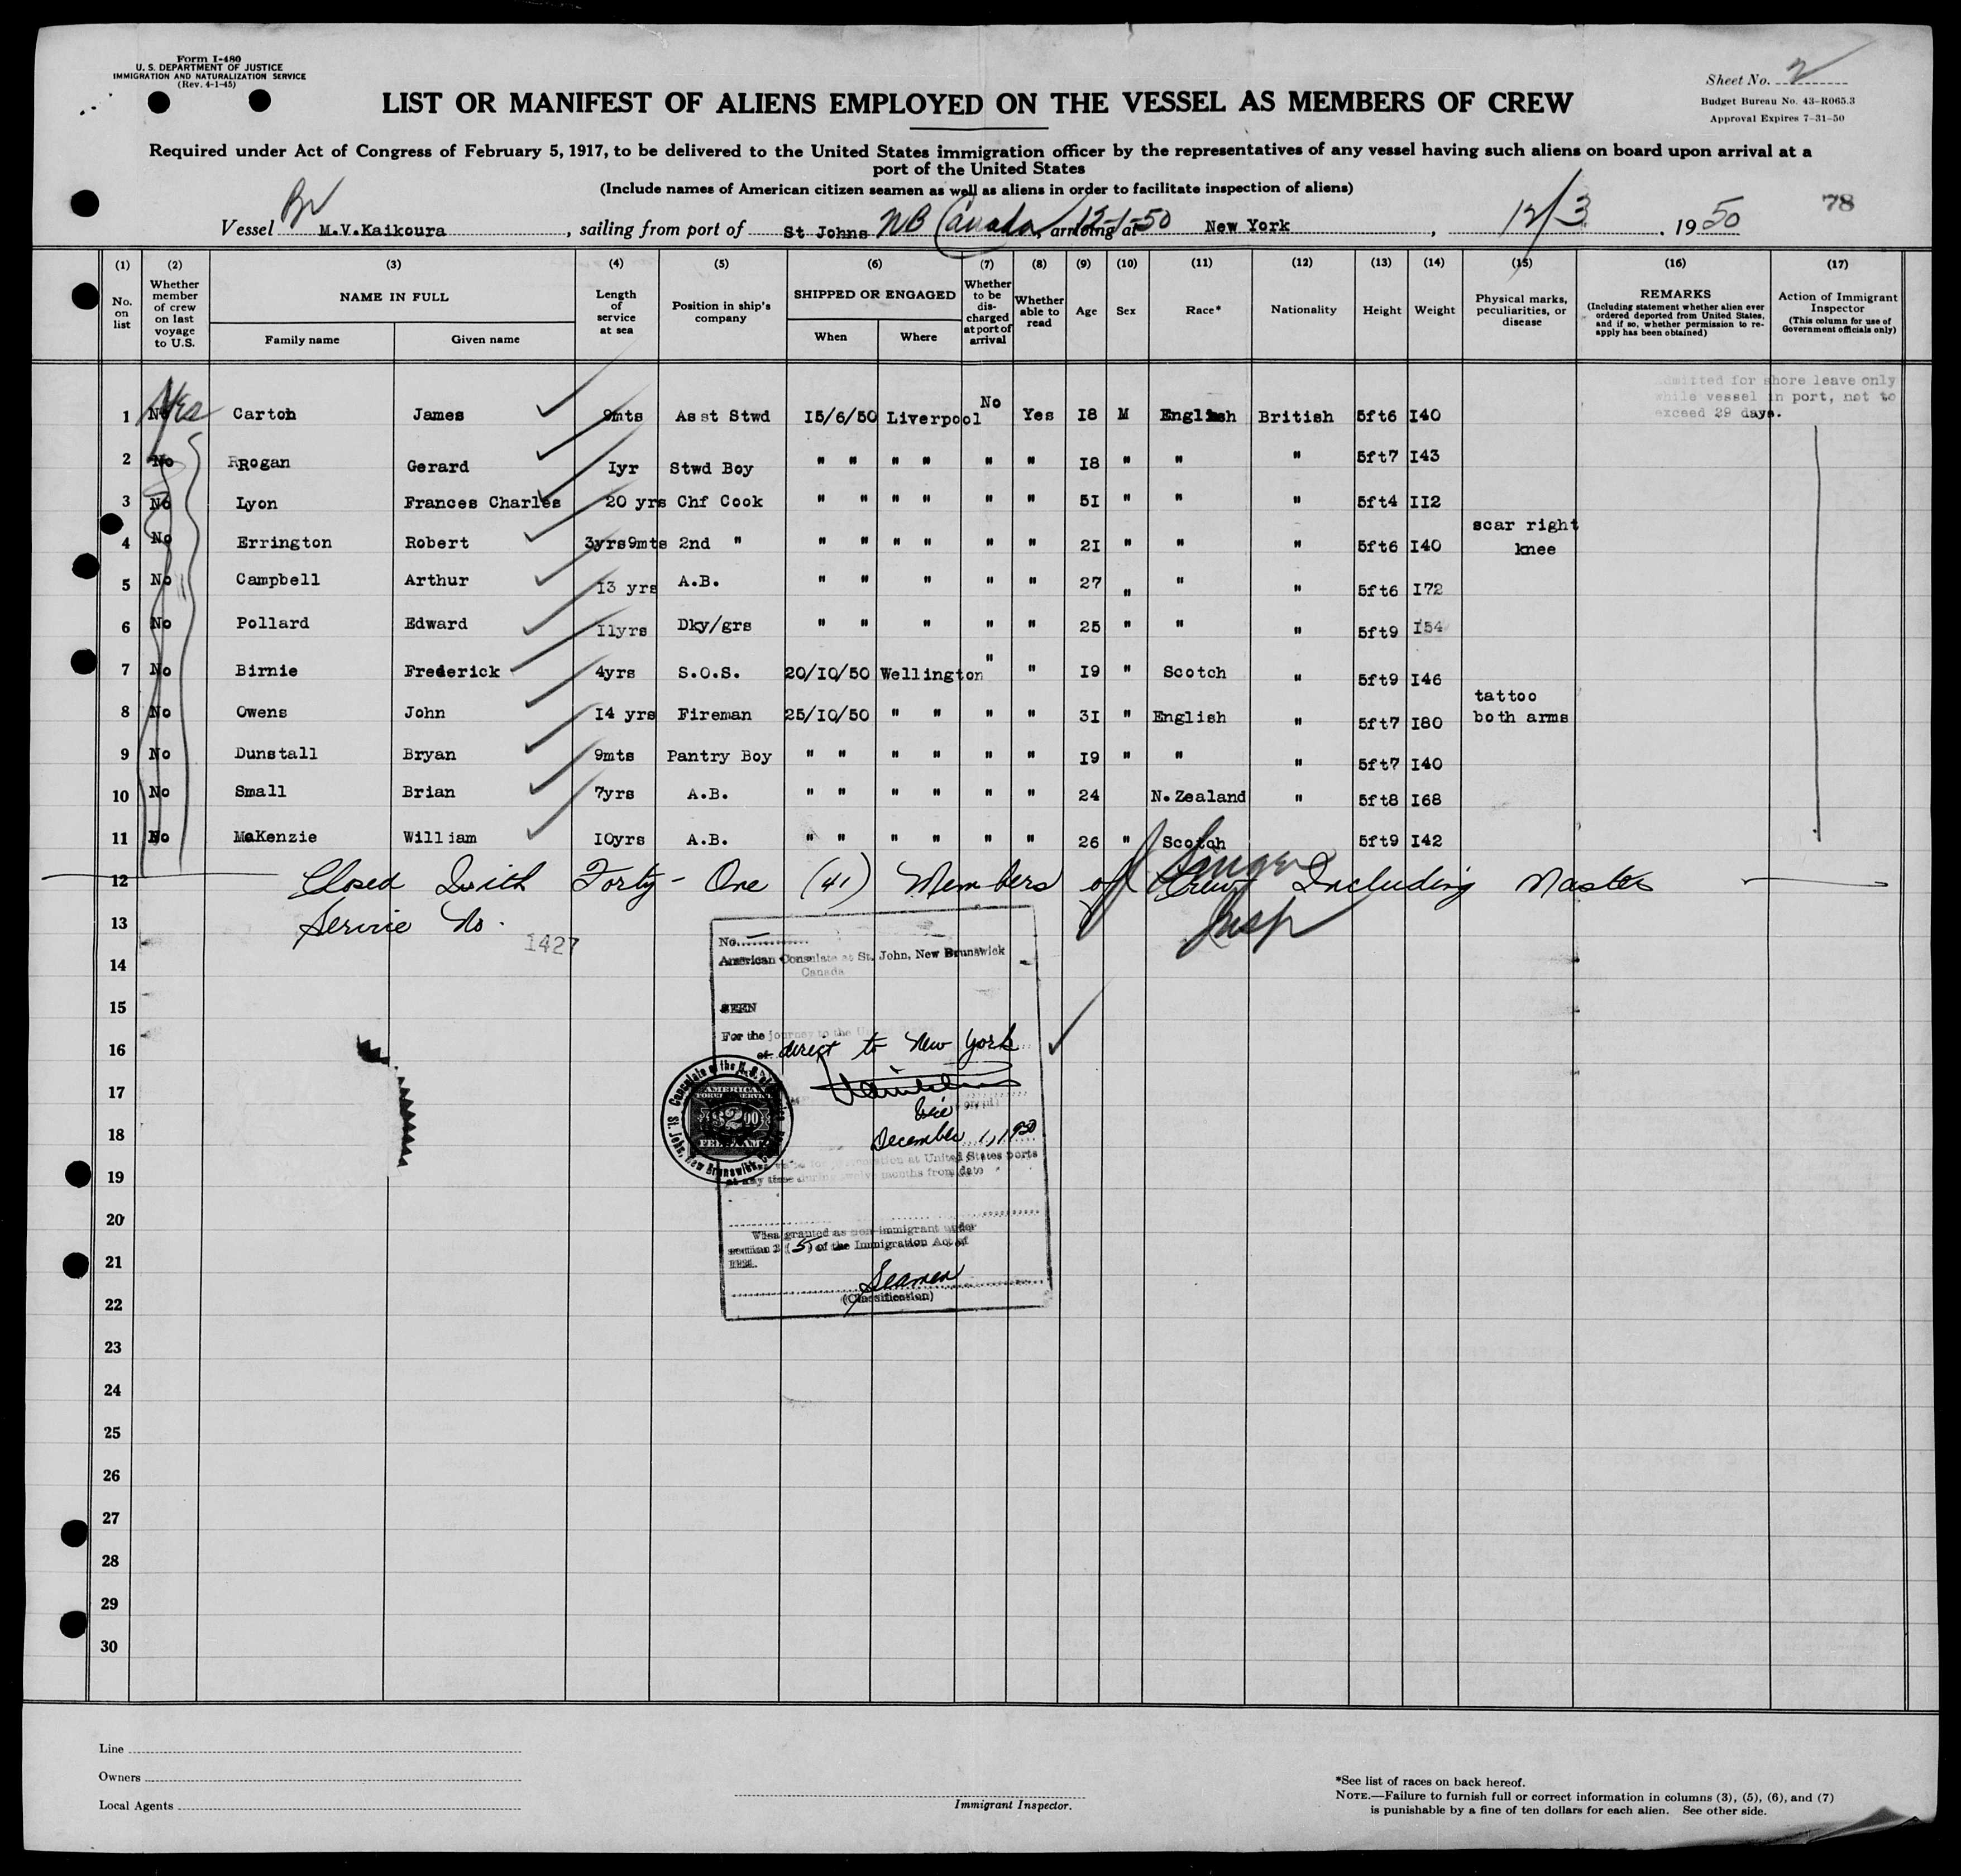 Form I-480
U. S. DEPARTMENT OF JUSTICE
IMMIGRATION AND NATURALIZATION SERVICE
(Rev. 4-1-45)
Sheet No. 2
Budget Bureau No. 43-R065.3
Approval Expires 7-31-50
LIST OR MANIFEST OF ALIENS EMPLOYED ON THE VESSEL AS MEMBERS OF CREW
Required under Act of Congress of February 5, 1917, to be delivered to the United States immigration officer by the representatives of any vessel having such aliens on board upon arrival at a
port of the United States
(Include names of American citizen seamen as well as aliens in order to facilitate inspection of aliens)
78
Br
Vessel M.V.Kaikoura, sailing from port of St Johns NB Canada, 12-1-50 arriving at New York, 12/3. 1950
(1) (2) (3) (4) (5) (6) (7) (8) (9) (10) (11) (12) (13) (14) (15) (16) (17)
No. on list
Whether member of crew on last voyage to U.S.
NAME IN FULL
Family name Given name
Length of service at sea
Position in ship's company
SHIPPED OR ENGAGED
When Where
Whether to be discharged at port of arrival
Whether able to read
Age
Sex
Race*
Nationality
Height
Weight
Physical marks, peculiarities, or disease
REMARKS
(Including statement whether alien ever ordered deported from United States, and if so, whether permission to reapply has been obtained)
Action of Immigrant Inspector
(This column for use of Government officials only)
admitted for shore leave only
while vessel in port, not to
exceed 29 days.
1 No Yes Carton James 9mts Asst Stwd I5/6/50 Liverpool No Yes I8 M English British 5ft6 I40
2 No Rogan Gerard Iyr Stwd Boy " " " " " " I8 " " " 5ft7 I43
3 No Lyon Frances Charles 20 yrs Chf Cook " " " " " " 5I " " " 5ft4 II2
4 No Errington Robert 3yrs9mts 2nd " " " " " " " 2I " " " 5ft6 I40 scar right knee
5 No Campbell Arthur I3 yrs A.B. " " " " " 27 " " " 5ft6 I72
6 No Pollard Edward IIyrs Dky/grs " " " " " 25 " " " 5ft9 I54
7 No Birnie Frederick 4yrs S.O.S. 20/I0/50 Wellington " " I9 " Scotch " 5ft9 I46
8 No Owens John I4 yrs Fireman 25/I0/50 " " " " 3I " English " 5ft7 I80 tattoo both arms
9 No Dunstall Bryan 9mts Pantry Boy " " " " " " I9 " " " 5ft7 I40
10 No Small Brian 7yrs A.B. " " " " " " 24 N.Zealand " 5ft8 I68
11 No MaKenzie William I0yrs A.B. " " " " " " 26 " Scotch 5ft9 I42
12 Closed With Forty-One (41) Members of Crew Including Master
13 Service No. 1427
Insp
14
15
16
17
18
19
20
21
22
23
24
25
26
27
28
29
30
No.
American Consulate at St. John, New Brunswick
Canada
SEEN
For the journey to the United States
direct to New York
December 1, 1950
at United States ports
at any time during twelve months from date
Visa granted as non-immigrant under
section 3 (5) of the Immigration Act of
1924.
Seamen
(Classification)
Consulate of the U.S. of America
St. John, New Brunswick, Canada
AMERICAN
FOREIGN SERVICE
$2.00
FEE STAMP
Line
Owners
Local Agents
Immigrant Inspector.
*See list of races on back hereof.
NOTE.—Failure to furnish full or correct information in columns (3), (5), (6), and (7)
is punishable by a fine of ten dollars for each alien. See other side.